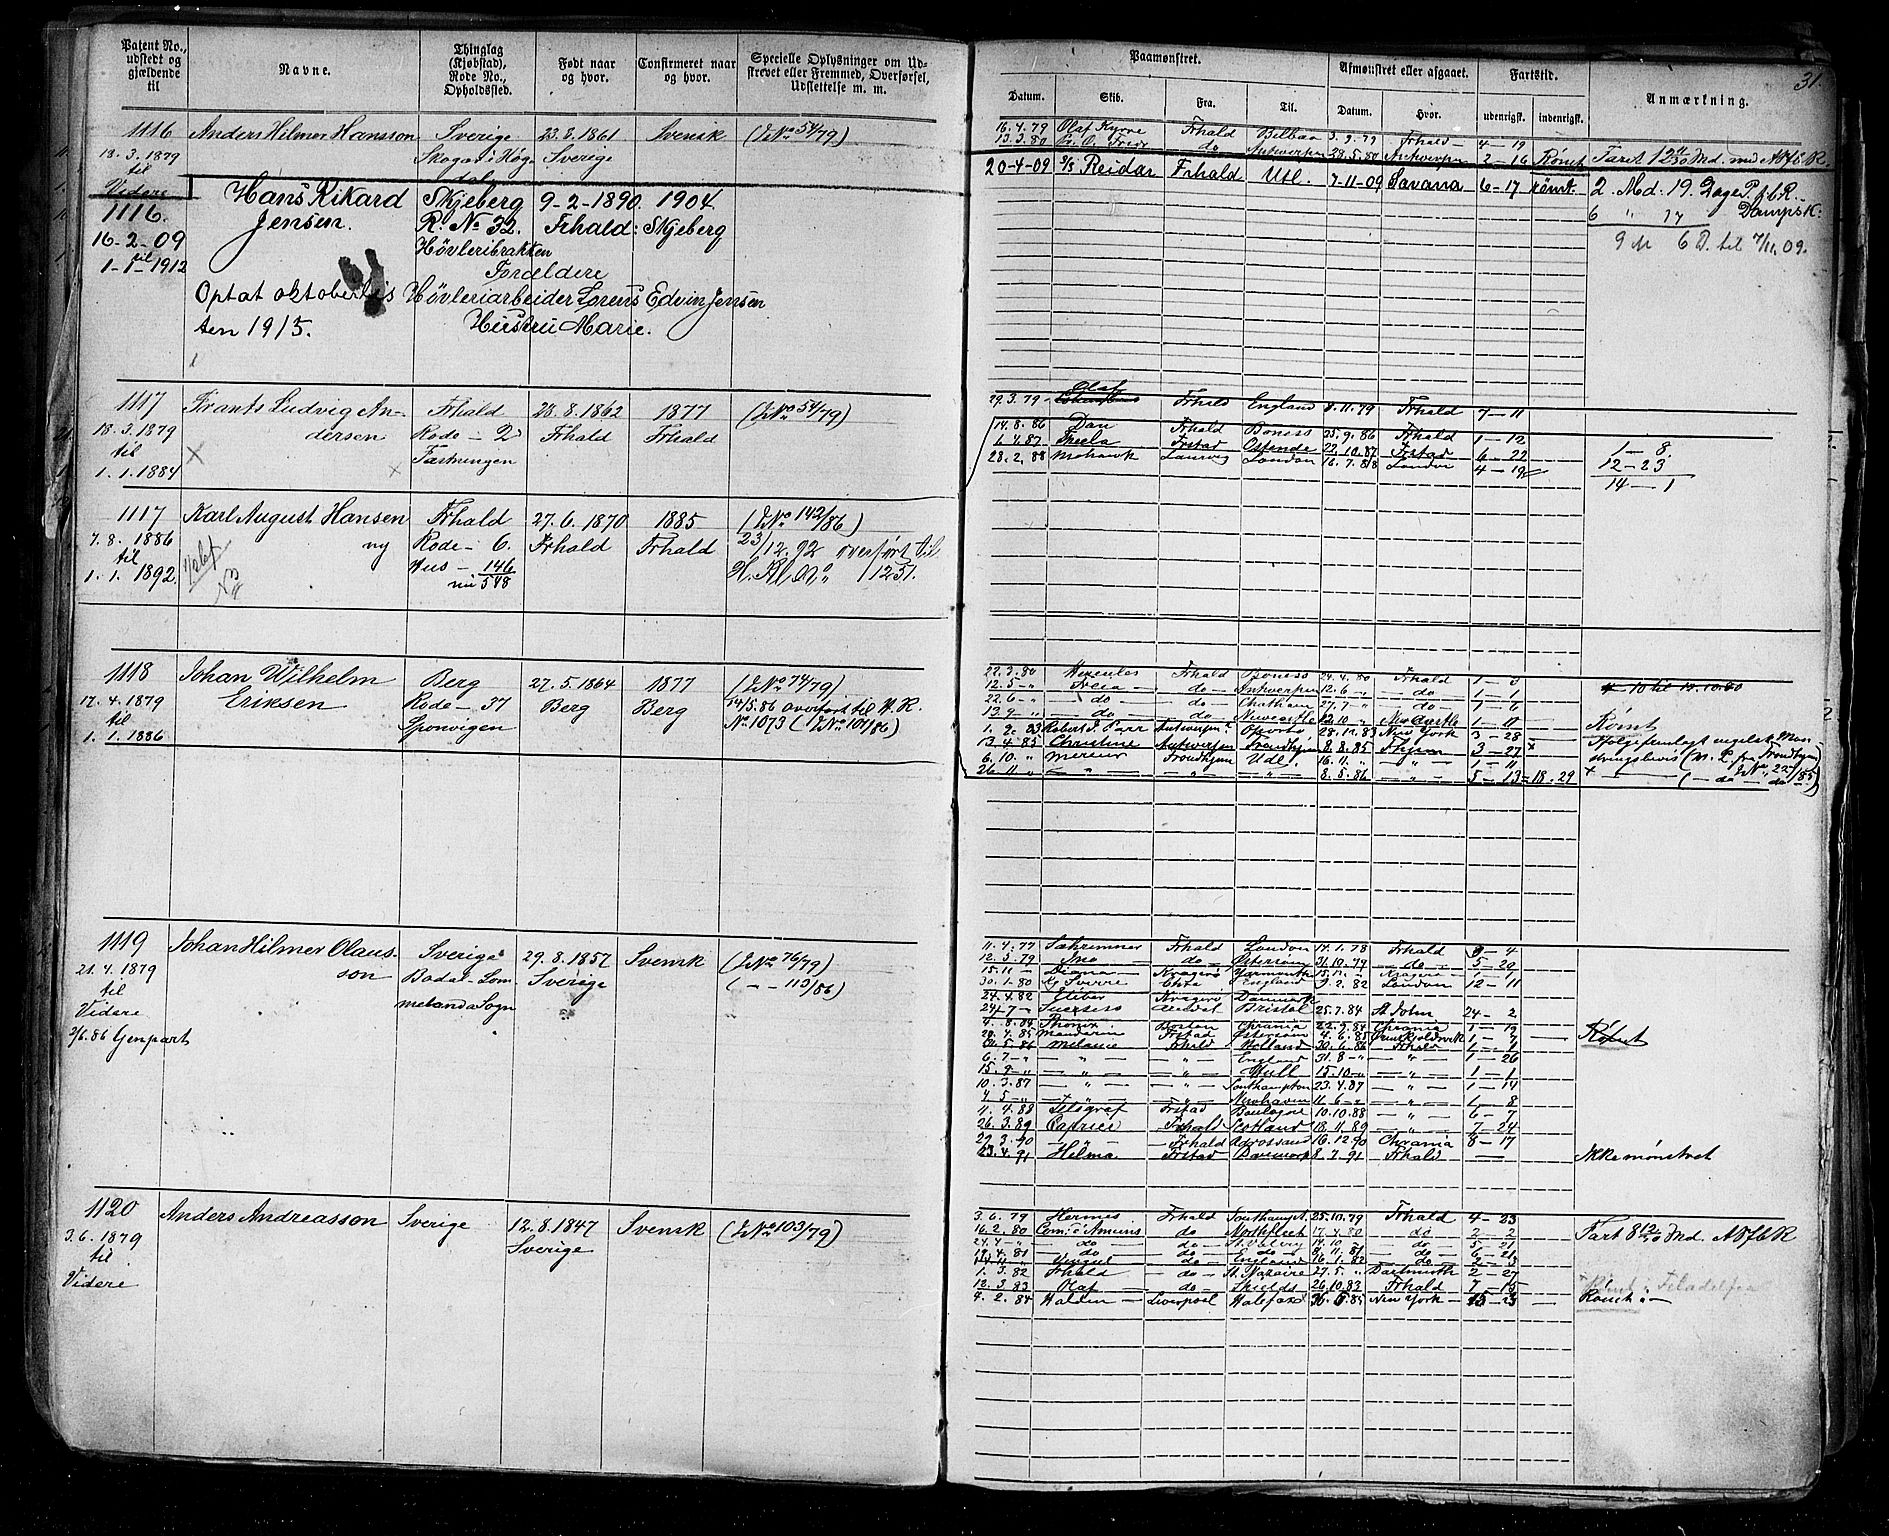 Patent No., udstedt og gjældende til
Navne.
Thinglag (Kjøbstad), Rode No., Opholdssted.
Født naar og hvor.
Confirmeret naar og hvor.
Specielle Oplysninger om Udstrevet eller Fremmed, Overførsel, Udslettelse m. m.
1116 Anders Hilmer Hansson Sverige 23.8.1861 Svensk (J.No 54/79)
18.3.1879 Skogar i Høg- Sverige
til dal
Videre
1116. Hans Rikard Skjeberg 9-2-1890 1904
16-2-09 Jensen. R. No 32. Frhald: Skjeberg
til Høvleribrakken
1-1-1912 Forældere
Optat oktoberlis Høvleriarbeider Lorens Edvin Jensen
ten 1915. Hustru Marie.
1117 Frants Ludvig An- Frhald 28.8.1862 1877 (J.No 54/79)
18.3.1879 dersen Rode - 2 Frhald Frhald
til Fæstningen
1.1.1884
1117 Karl August Hansen Frhald 27.6.1870 1885 (J.No 142/86)
7.8.1886 ny Rode - 6. Frhald Frhald 23/12.92 overført til
til Hus - 146 H. Rl No 1251.
1.1.1892 nu 548
1118 Johan Wilhelm Berg 27.5.1864 1877 (J.No 74/79)
17.4.1879 Eriksen Rode - 37 Berg Berg 14/5.86 overført til H. R.
til Sponvigen No. 1073 (J.No. 101/86)
1.1.1886
1119 Johan Hilmer Olaus- Sverige 29.8.1857 Svensk (J.No 76/79)
21.4.1879 son Bodal - Lom- Sverige ( - - 113/86)
til melanda Sogn
Videre
2/6.86 Genpart
1120 Anders Andreasson Sverige 12.8.1847 Svensk (J.No 103/79)
3.6.1879 Sverige
til
Videre
31.
Paamønstret.
Afmønstret eller afgaaet.
Fartstid.
Anmærkning.
Datum. Skib. Fra. Til. Datum. Hvor. udenrigsk. indenrigsk.
16.4.79 Olaf Kyrre Frhald Bilbao 3.9.79 Frhald 4-19
13.3.80 do Antwerpen 28.5.80 Antwerpen 2-16 Rømt
20-4-09 S/S Reidar Frhald Utl. 7-11-09 Savana 6-17 rømt. 2 Md. 19 Dage
6 " 17 " Dampsk:
9 M 6 D. til 7/11.09.
29.3.79 Olaf Frhald England 8.11.79 Frhald 7-11
14.8.86 Dan Frhald Boness 25.9.86 Frhald 1-12
6.4.87 Theela Frstad Ostende 22.10.87 Frstad 6-22 1-8.
28.2.88 Mohawk Laurvig London 16.7.88 London 4-19 12-23
14-1
22.3.80 Hercules Frhald Boness 24.4.80 Frhald 1-3
12.5-" Freia - do - Antwerpen 12.6-" - do - 1-1
22.6-" - do - - do - Chatham 27.7-" - do - 1-6
13.9-" - do - - do - Newcastle 12.10-" Newcastle 1-10 - Rømt
1.2.83 Robert S. Parr Antwerpen Oporto 28.11.83 New York 3-28
13.4.85 Christine Antwerpen Trondhjem 8.8.85 Thjem 3-27
6.10." Mercur Trondhjem Udl. 16.11." " 1-11
26.11." " " " 8.5.86 " 5-13 18.29
11.4.77 Sæhrimner Frhald London 14.1.78 Frhald 9-4
12.5.79 Ino - do - Østersøen 31.10.79 - do - 5-20
15.11-" Diana - Kragerø Yarmouth 15.12-" Kragerø 1-1
30.1.80 Kg Sverre Chra England 9.2.82 London 12-11
24.4.82 Kragerø Danmark
24/-7- Success Arendal Bristol 25.7.84 St John 24-2
4.8.84 Phønix Boston Chrania 22.9.84 Chrania 1-19
20.4.85 Mandarin Frstad Østersøen 4.6.85 1-7 - Rømt
5.86 Melanie Frhald Holland 30.6.86 Frhald 1-1
6.7-" " " England 31.8-" " 1-26
15.9-" " " Hull 15.10-" 1-1
10.3.87 " " Southampton 23.4.87 " 1-14
4.5-" " " Newhaven 11.6-" " 1-8
11.4.88 Telegraf Frstad Boulogne 10.10.88 " 6-7
26.3.89 Caprice Frhald Scotland 18.11.89 " 7-24
27.3.90 " Frhald 16.12.90 Chrania 8-17
23.4.91 Hilma Frstad 8.7.91 Frhald - Ikke mønstret
3.6.79 Hermes Frhald Southampt. 25.10.79 Frhald 4-23
16.2.80 do Northfleet 17.4.80 do 2-2
24.4-" do do 14.10-" do 5-21
19.4.81 do do do 8.11.81 do 6-21
England 16.1.82 do 2-3
1.3.82 Frhald - do - St. Nazaire 27.5." Dartmouth 2-27
12.3.83 Olaf do Skields 26.10.83 Frhald 7-15
4.2.84 Halden - Liverpool Halefax New York - 15-23 - Rømt i -